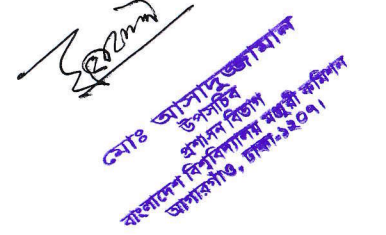 মোঃ আসাদুজ্জামান
উপসচিব
প্রশাসন বিভাগ
বাংলাদেশ বিশ্ববিদ্যালয় মঞ্জুরী কমিশন
আগারগাঁও, ঢাকা-১২০৭।